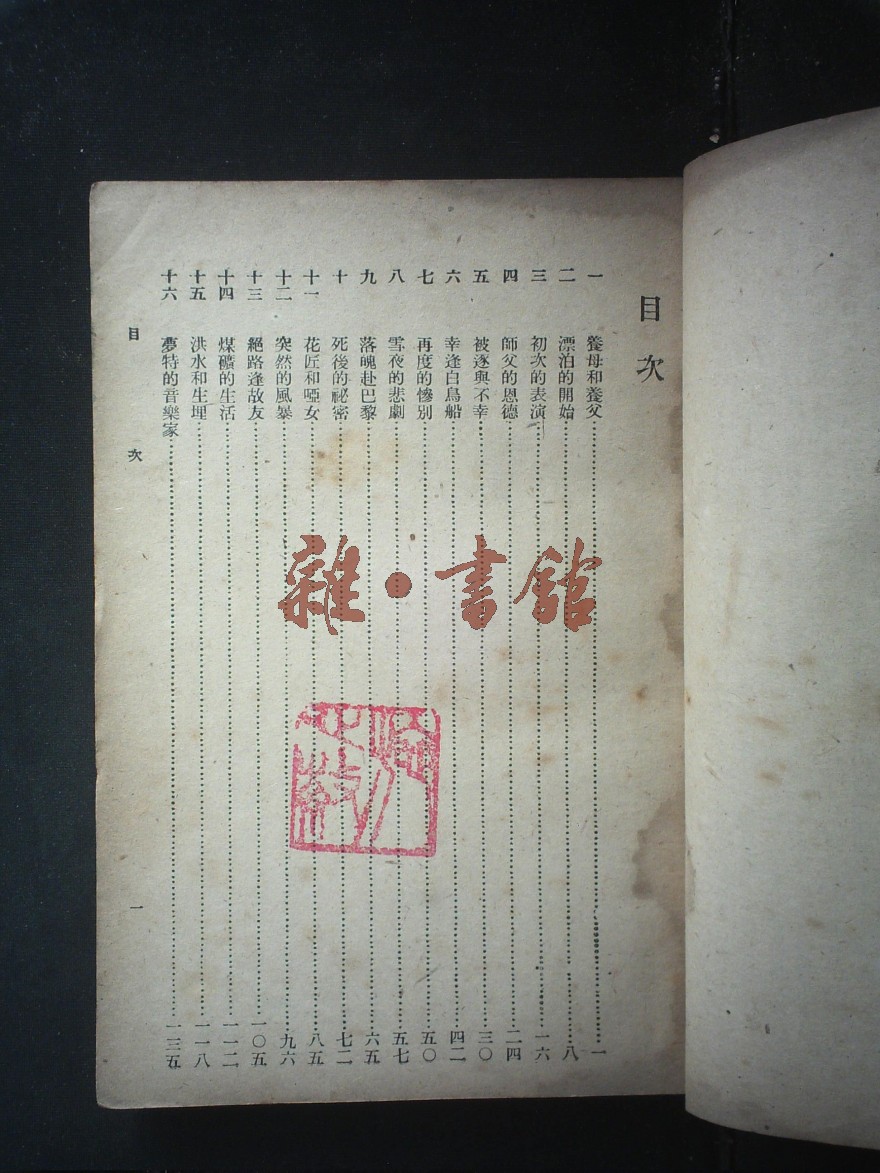 目次
一 養母和養父 一
二 漂泊的開始 八
三 初次的表演 一六
四 師父的恩德 二四
五 被逐與不幸 三〇
六 幸逢白鳥船 四二
七 再度的慘別 五〇
八 雪夜的悲劇 五七
九 落魄赴巴黎 六五
十 死後的祕密 七二
十一 花匠和啞女 八五
十二 突然的風暴 九六
十三 絕路逢故友 一〇五
十四 煤礦的生活 一一二
十五 洪水和生埋 一一八
十六 夢特的音樂家 一三五
目 次 一
雜·書館